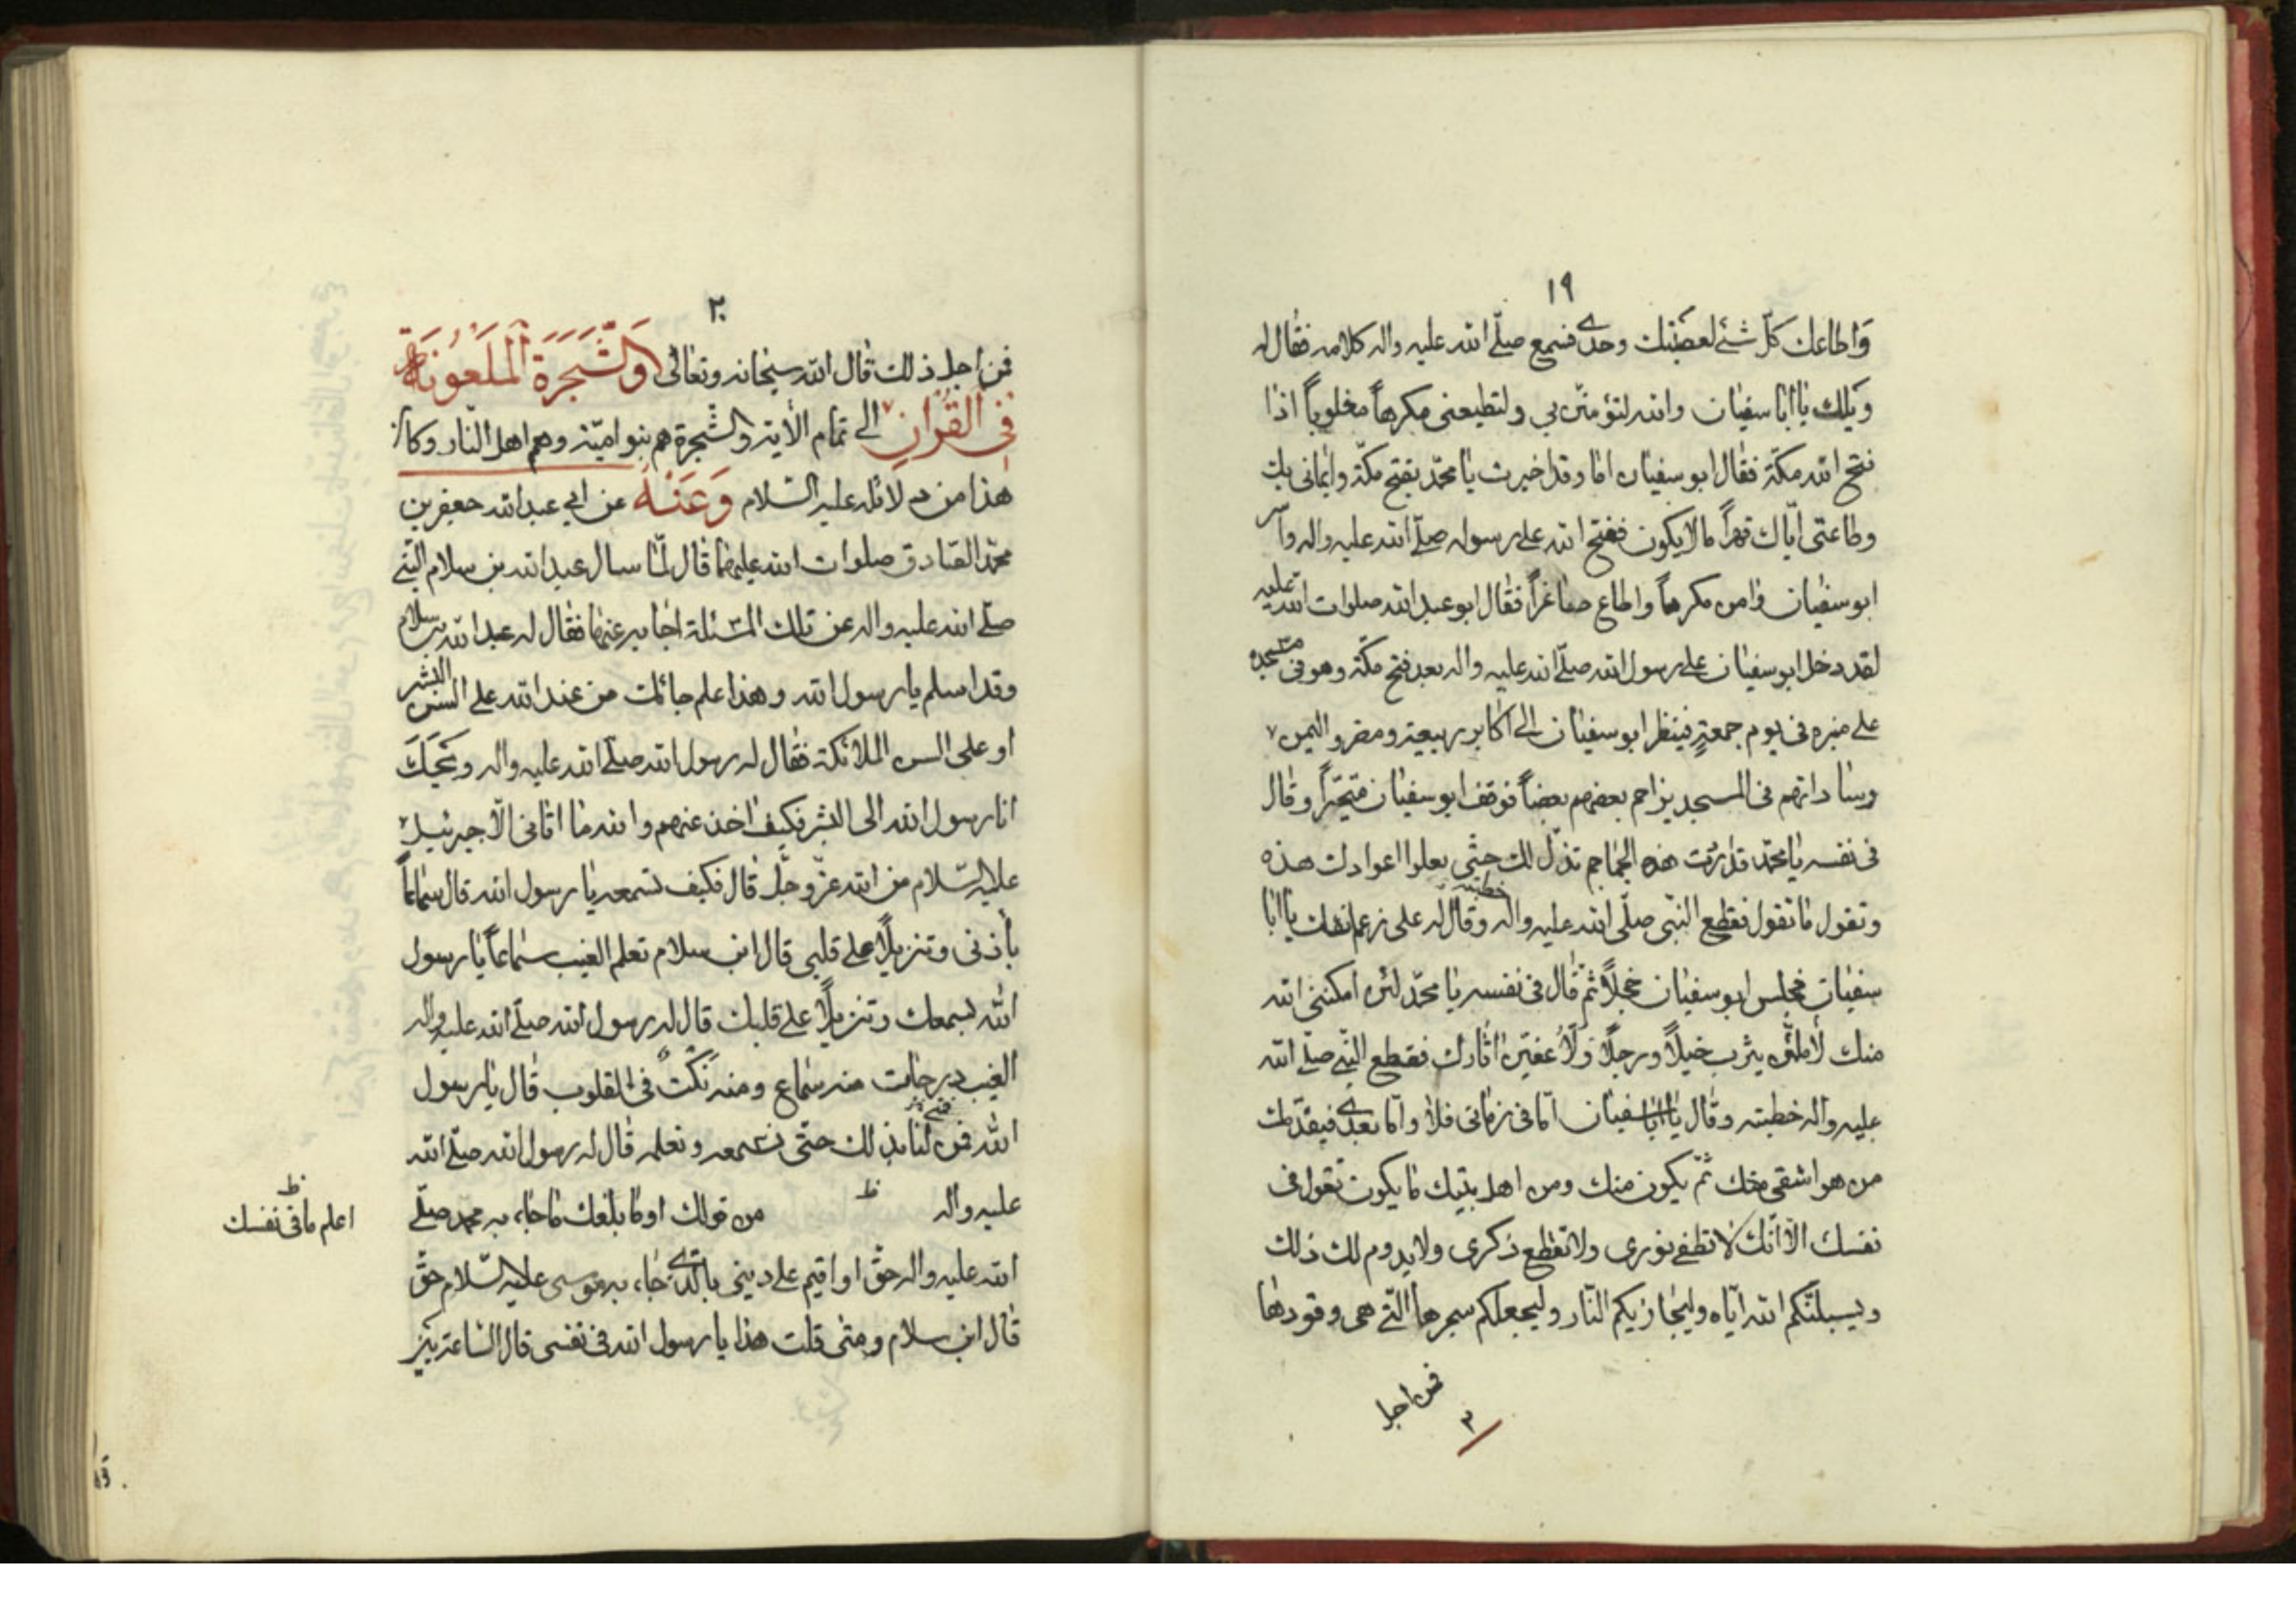 ١٩
واطاعك كلّ شئ لعصيتك وحدى فسمع صلّى الله عليه واله كلامه فقال له
ويلك يا ابا سفيان والله لتؤمننّ بي ولتطيعنى مكرهاً مغلوباً اذا
فتح الله مكّة فقال ابو سفيان اما وقد اخبرت يا محمّد بفتح مكّة وايمانى بك
وطاعتى ايّاك قهراً ما لا يكون ففتح الله على رسوله صلّى الله عليه واله واسر
ابو سفيان فامن مكرهاً واطاع صاغراً فقال ابو عبد الله صلوات الله عليه
لقد دخل ابو سفيان على رسول الله صلّى الله عليه واله بعد فتح مكّة وهو فى مسجده
على منبره فى يوم جمعةٍ فينظر ابو سفيان الى اكابر ربيعة ومضر واليمن
وساداتهم فى المسجد يزاحم بعضهم بعضاً فوقف ابو سفيان متحيّراً وقال
فى نفسه يا محمّد قدرت هذه الجماجم تذلّ لك حتّى يعلوا اعوادك هذه
وتقول ما تقول فقطع النبّى صلّى الله عليه واله خطبته وقال له على زعم انفك يا ابا
سفيان فجلس ابو سفيان خجلاً ثمّ قال فى نفسه يا محمّد لئن امكننى الله
منك لأملئنّ يثرب خيلاً ورجلاً ولأعفينّ اثارك فقطع النبّى صلّى الله
عليه واله خطبته وقال يا ابا سفيان امّا فى زمانى فلا وامّا بعدى فيقدّمك
من هو اشقى منك ثمّ يكون منك ومن اهل بيتك ما يكون تقول فى
نفسك الاّ انّك لا تطفى نورى ولا تقطع ذكرى ولا يدوم لك ذلك
وليسبلنّكم الله ايّاه وليجازيكم النّار وليجعلكم سجرها الّتى هى وقودها
فمن اجل
٣
٢٠
فمن اجل ذلك قال الله سبحانه وتعالى والشّجرة الملعونة
فى القرآن الى تمام الأية والشّجرة هم بنو اميّة وهم اهل النّار وكان
هذا من دلائله عليه السّلام وعنه عن ابي عبد الله جعفر بن
محمّد الصّادق صلوات الله عليهما قال لمّا سال عبد الله بن سلام النّبى
صلّى الله عليه واله عن تلك المسئلة اجابه عنها فقال له عبد الله بن سلام
وقد اسلم يا رسول الله وهذا علم جائك من عند الله على السن البشر
او على السن الملائكة فقال له رسول الله صلّى الله عليه واله ويحك
انا رسول الله الى البشر فكيف اخذ عنهم والله ما اتانى الاّ جبرئيل
عليه السّلام من الله عزّ وجلّ قال فكيف تسمعه يا رسول الله قال سماعاً
بأذنى وتنزيلاً على قلبى قال ابن سلام تعلم الغيب سماعاً يا رسول
الله بسمعك وتنزيلاً على قلبك قال له رسول الله صلّى الله عليه واله
الغيب درجات منه سماع ومنه نكت فى القلوب قال يا رسول
الله فمن لنا بذلك حتّى نسمعه ونعلمه قال له رسول الله صلّى الله
عليه واله ظ من قولك او ما بلغك ما جاء به محمد صلّى
ظ
اعلم ما فى نفسك
الله عليه واله حقّ او اقيم على دينى بالّذى جاء به موسى عليه السّلام حقّ
قال ابن سلام ومتى قلت هذا يا رسول الله فى نفسى قال السّاعة بين